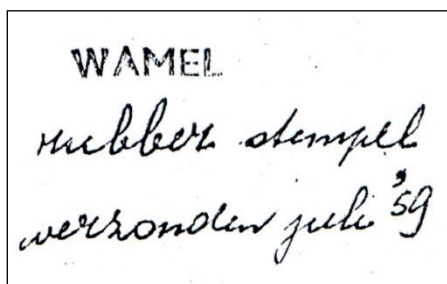 WAMEL
rubber stempel
verzonden juli '59